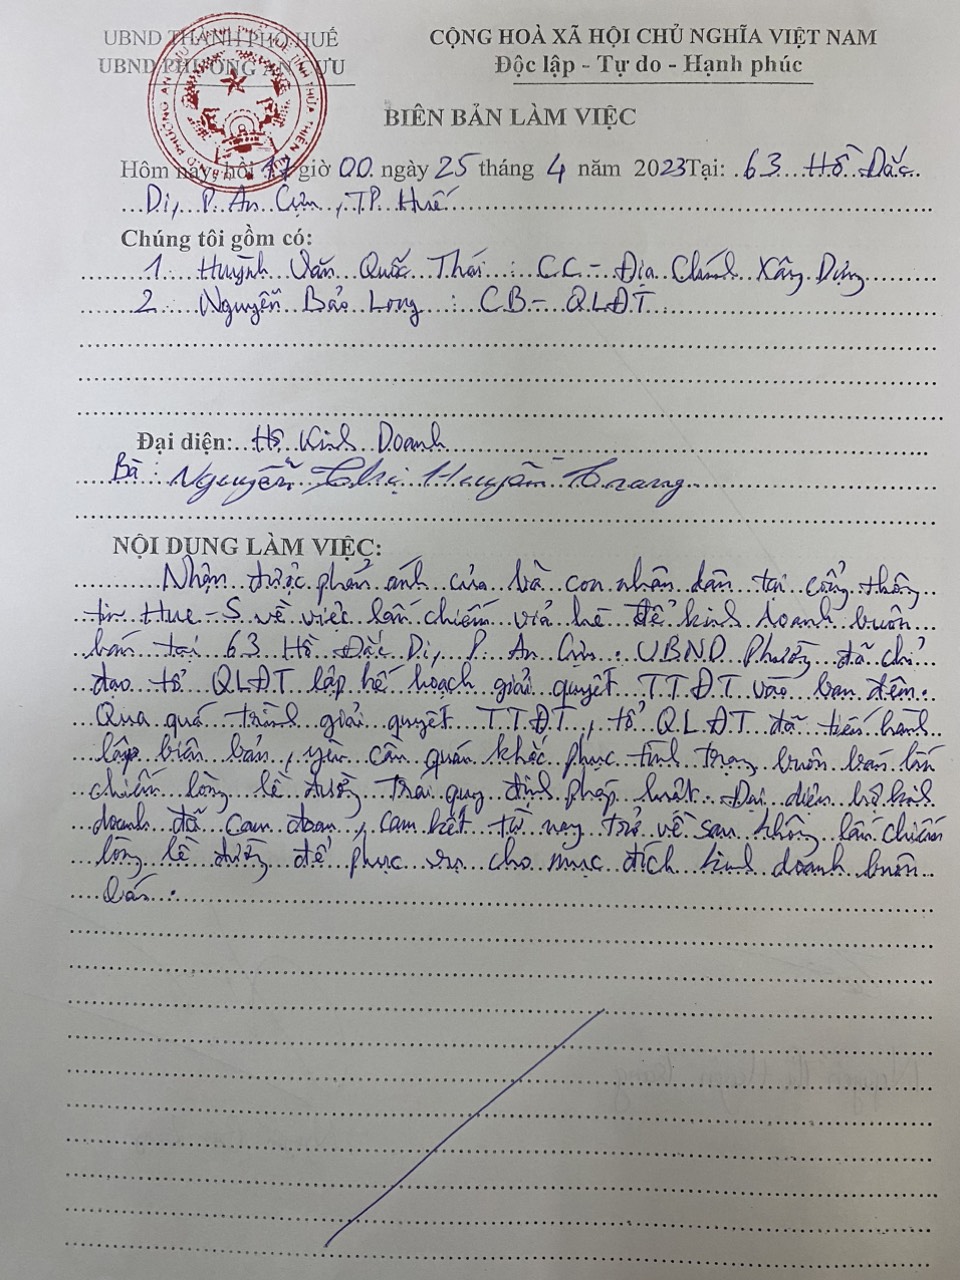 UBND THÀNH PHỐ HUẾ
UBND PHƯỜNG AN CỰU
CỘNG HOÀ XÃ HỘI CHỦ NGHĨA VIỆT NAM
Độc lập - Tự do - Hạnh phúc
BIÊN BẢN LÀM VIỆC
Hôm nay, hồi 17 giờ 00 ngày 25 tháng 4 năm 2023 Tại: 63 Hồ Đắc
Di, P. An Cựu, TP Huế
Chúng tôi gồm có:
1. Huỳnh Văn Quốc Thái : CC - Địa Chính Xây Dựng
2. Nguyễn Bảo Long : CB - QLĐT
Đại diện: Hộ Kinh Doanh
Bà : Nguyễn Thị Huyền Trang
NỘI DUNG LÀM VIỆC:
Nhận được phản ánh của bà con nhân dân tại cổng thông
tin Hue-S về việc lấn chiếm vỉa hè để kinh doanh buôn
bán tại 63 Hồ Đắc Di, P. An Cựu. UBND Phường đã chỉ
đạo tổ QLĐT lập kế hoạch giải quyết TTĐT vào ban đêm.
Qua quá trình giải quyết TTĐT, tổ QLĐT đã tiến hành
lập biên bản, yêu cầu quán khắc phục tình trạng buôn bán lấn
chiếm lòng lề đường trái quy định pháp luật. Đại diện hộ kinh
doanh đã cam đoan, cam kết từ nay trở về sau không lấn chiếm
lòng lề đường để phục vụ cho mục đích kinh doanh buôn
bán.